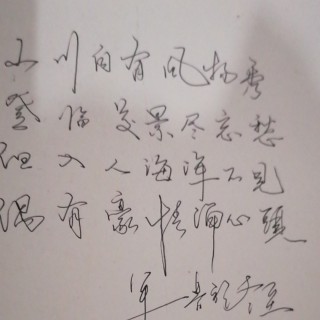 山川自有风物秀
登临美景尽忘愁
汇入人海浑不见
偶有豪情涌心头
军